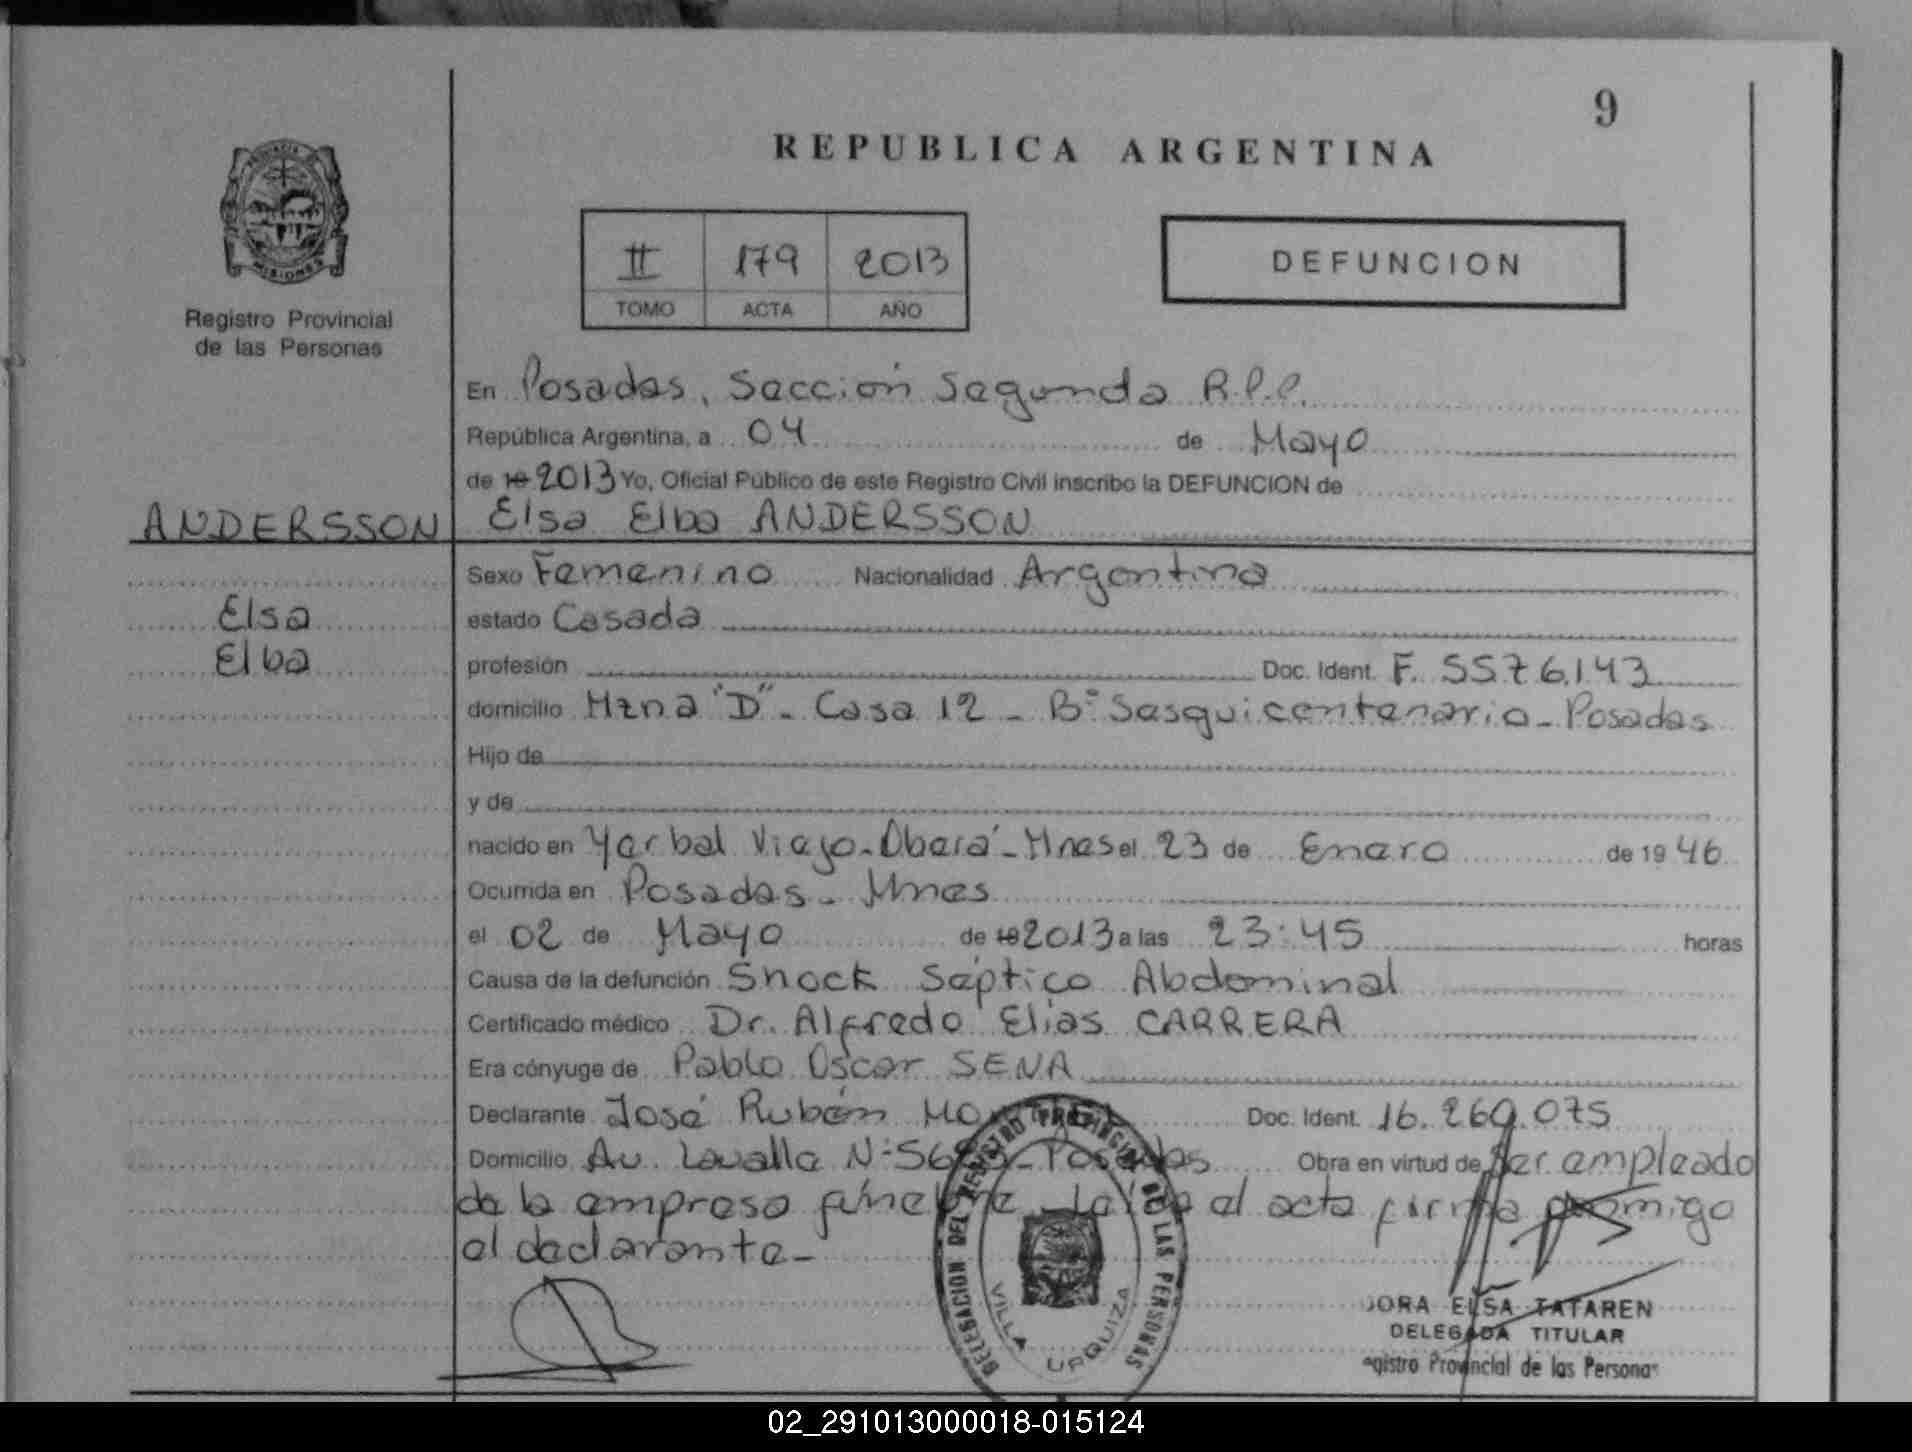 9
REPUBLICA ARGENTINA
PROVINCIA DE
MISIONES
Registro Provincial
de las Personas
II 179 2013
TOMO ACTA AÑO
DEFUNCION
En Posadas, Sección Segunda R.P.P.
República Argentina, a 04 de Mayo
de 19 2013 Yo, Oficial Público de este Registro Civil inscribo la DEFUNCION de
ANDERSSON Elsa Elba ANDERSSON
Sexo Femenino Nacionalidad Argentina
Elsa estado Casada
Elba profesión Doc. Ident. F. 5576.143
domicilio Mzna "D" - Casa 12 - Bº Sesquicentenario - Posadas
Hijo de
y de
nacido en Yerbal Viejo - Oberá - Mnes el 23 de Enero de 19 46
Ocurrida en Posadas - Mnes
el 02 de Mayo de 19 2013 a las 23:45 horas
Causa de la defunción Shock Séptico Abdominal
Certificado médico Dr. Alfredo Elias CARRERA
Era cónyuge de Pablo Oscar SENA
Declarante José Rubén Doc. Ident. 16.260.075
Domicilio Av. Lavalle Nº Posadas Obra en virtud de Ser empleado
de la empresa fúnebre - Leída el acta firma conmigo
el declarante -
DELEGACION DEL REGISTRO PROVINCIAL DE LAS PERSONAS
VILLA URQUIZA
DORA ELSA TATAREN
DELEGADA TITULAR
egistro Provincial de las Personas
02_291013000018-015124